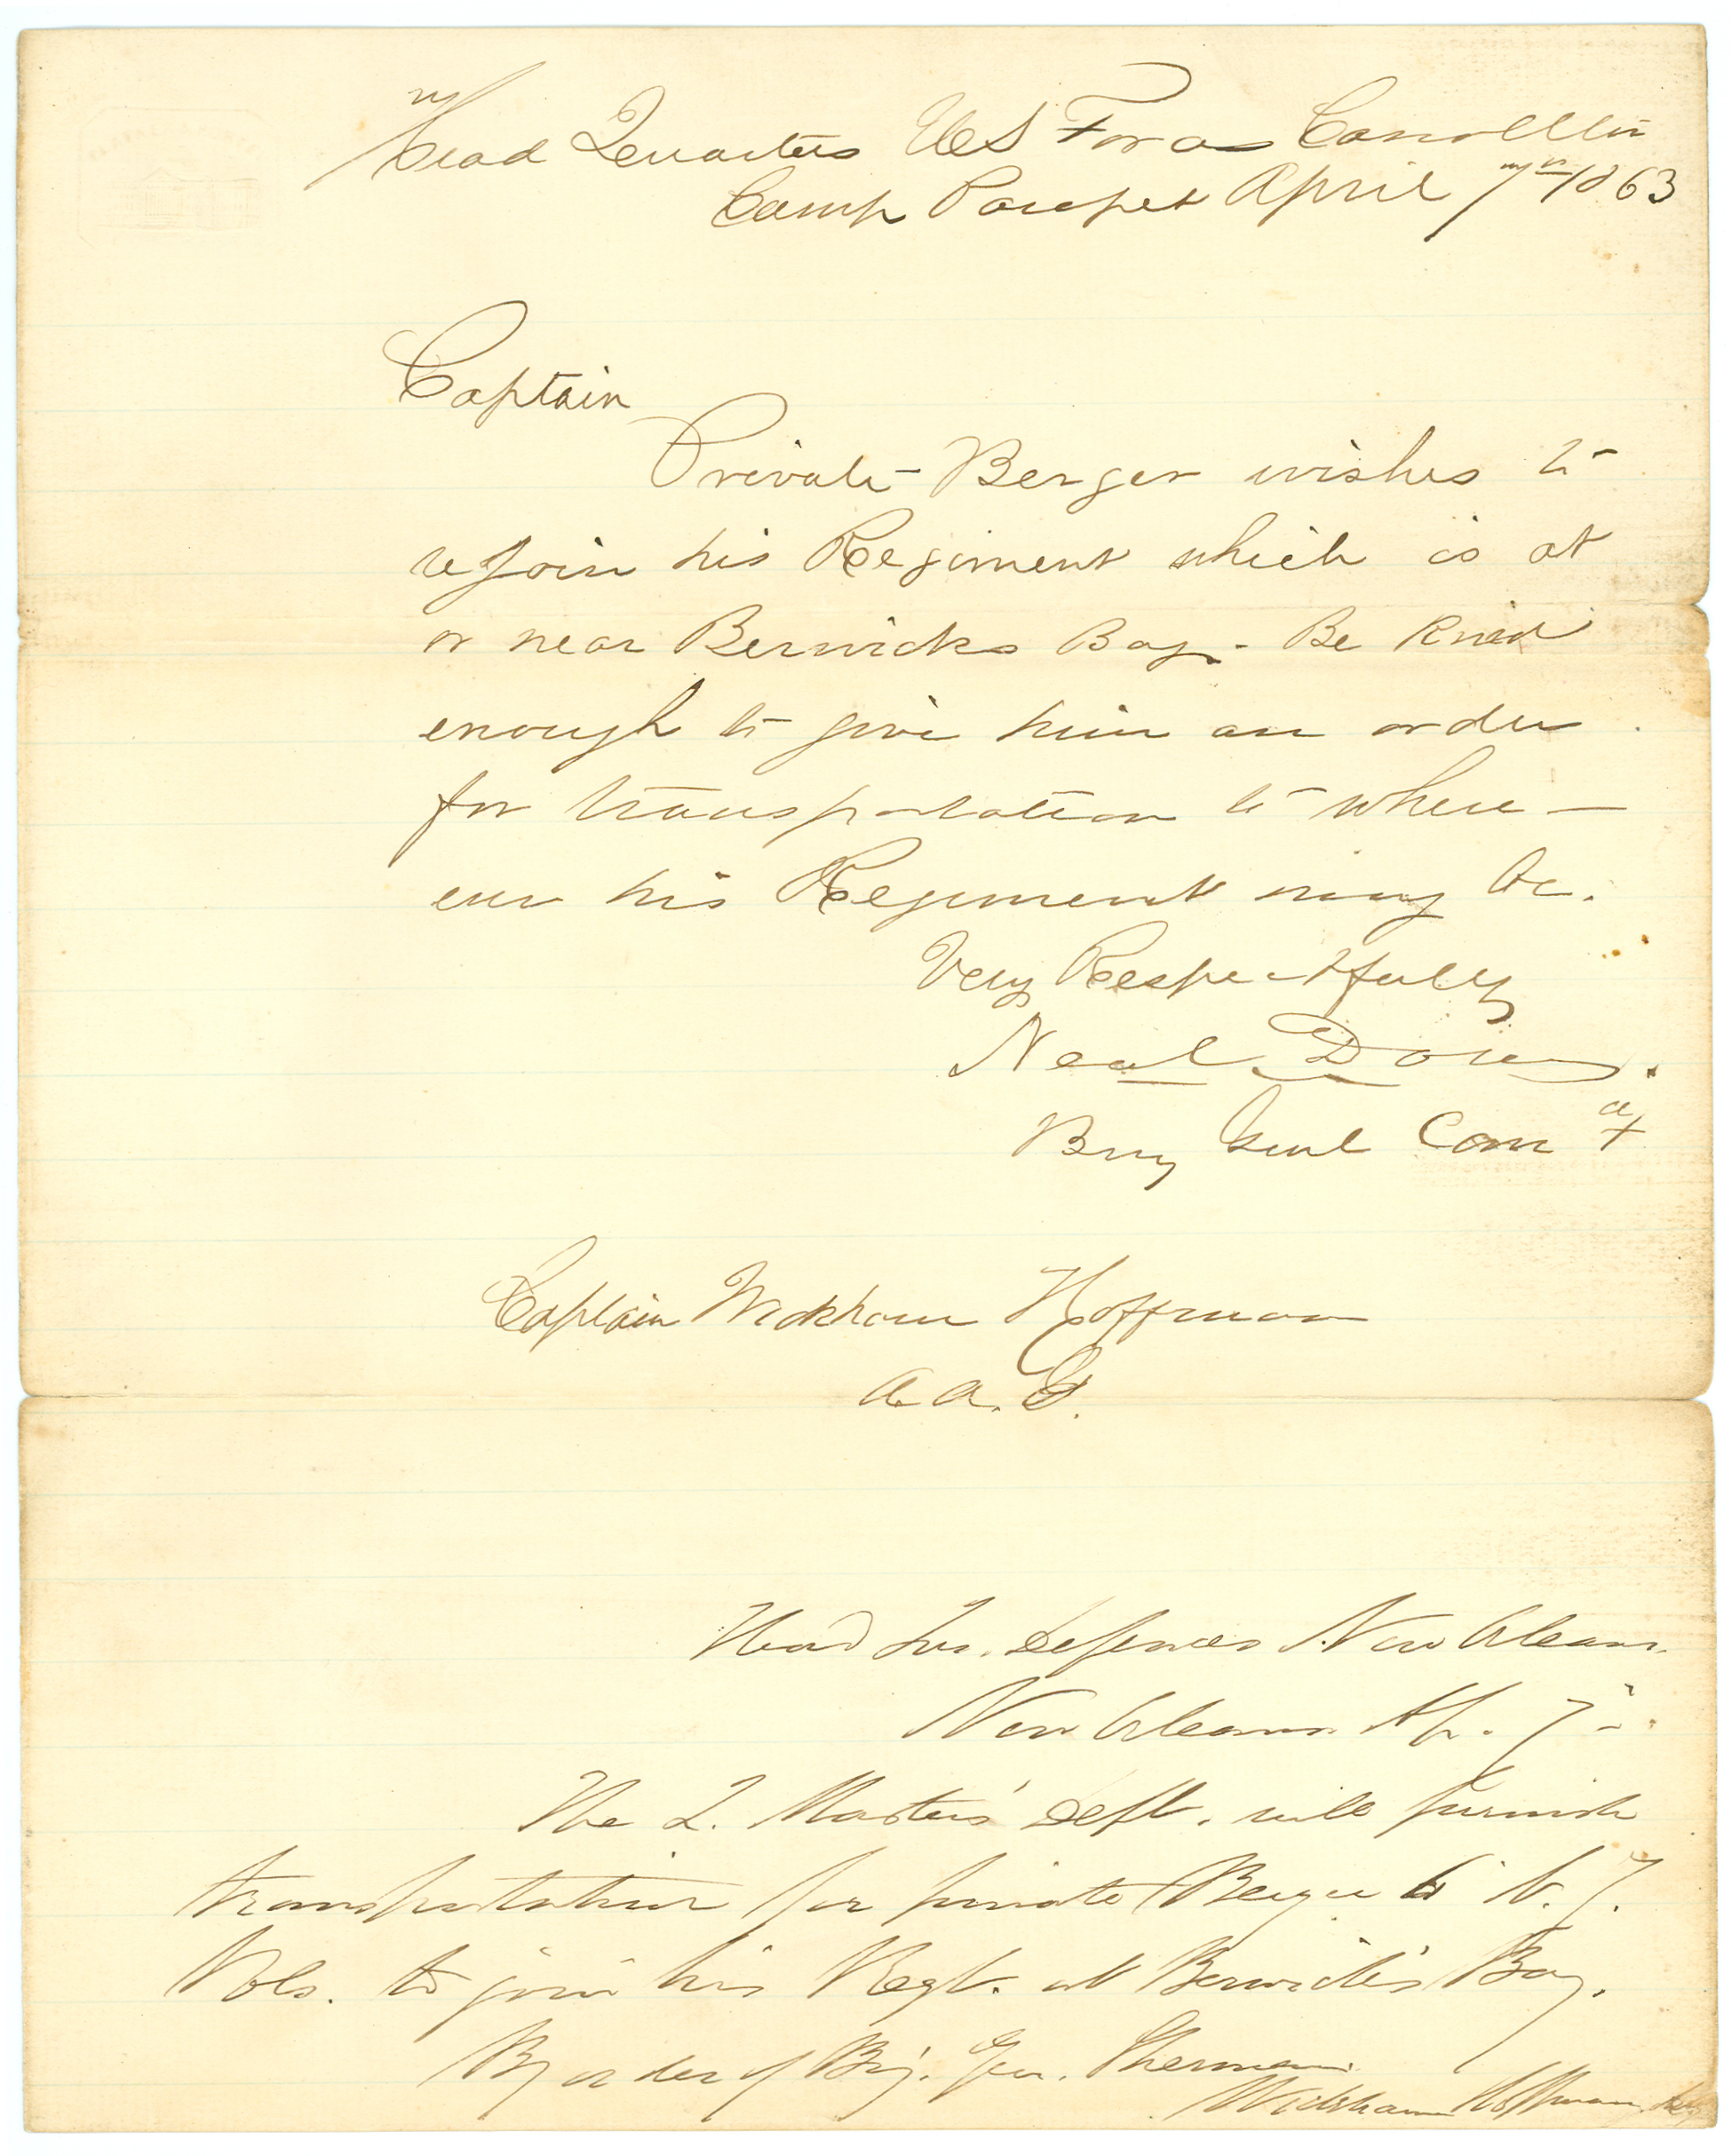 Head Quarters US Forces Carrollton
Camp Parapet April 7th 1863
Captain
Private Berger wishes to
rejoin his Regiment which is at
or near Berwicks Bay - Be kind
enough to give him an order
for transportation to where-
ever his Regiment may be.
Very Respectfully
Neal Dow.
Brig Genl Comdt
Captain Wickham Hoffman
A. A. G.
Head Qrs. Defences New Orleans.
New Orleans Ap. 7-
The Q. Masters' Dept. will furnish
transportation for private Berger 6
Vols. to join his Regt. at Berwick's Bay.
By order of Brig. Gen. Sherman
Wickham Hoffman